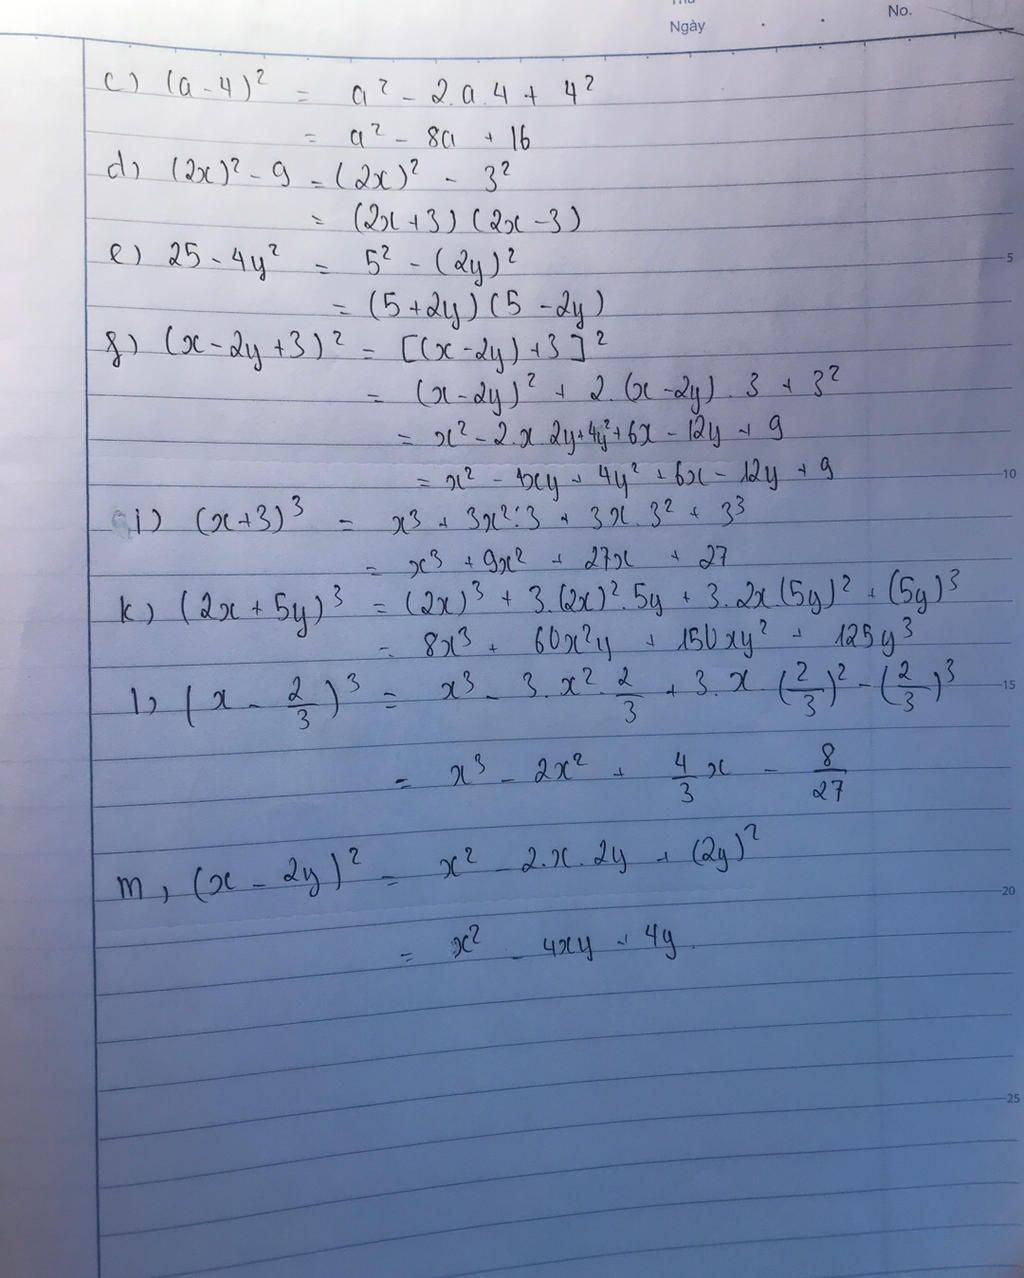 Thứ
Ngày . . No.
c) (a - 4)² = a² - 2.a.4 + 4²
= a² - 8a + 16
d) (2x)² - 9 = (2x)² - 3²
= (2x+3)(2x-3)
e) 25 - 4y² = 5² - (2y)²
5
= (5+2y)(5-2y)
g) (x-2y+3)² = [(x-2y)+3]²
= (x-2y)² + 2.(x-2y).3 + 3²
= x² - 2.x.2y+4y²+6x - 12y + 9
= x² - 4xy + 4y² + 6x - 12y + 9
10
i) (x+3)³ = x³ + 3x².3 + 3x.3² + 3³
= x³ + 9x² + 27x + 27
k) (2x + 5y)³ = (2x)³ + 3.(2x)².5y + 3.2x.(5y)² + (5y)³
= 8x³ + 60x²y + 150xy² + 125y³
l) (x - 2/3)³ = x³ - 3.x².2/3 + 3.x.(2/3)² - (2/3)³
15
= x³ - 2x² + 4/3x - 8/27
m, (x - 2y)² = x² - 2.x.2y + (2y)²
20
= x² - 4xy + 4y.
25